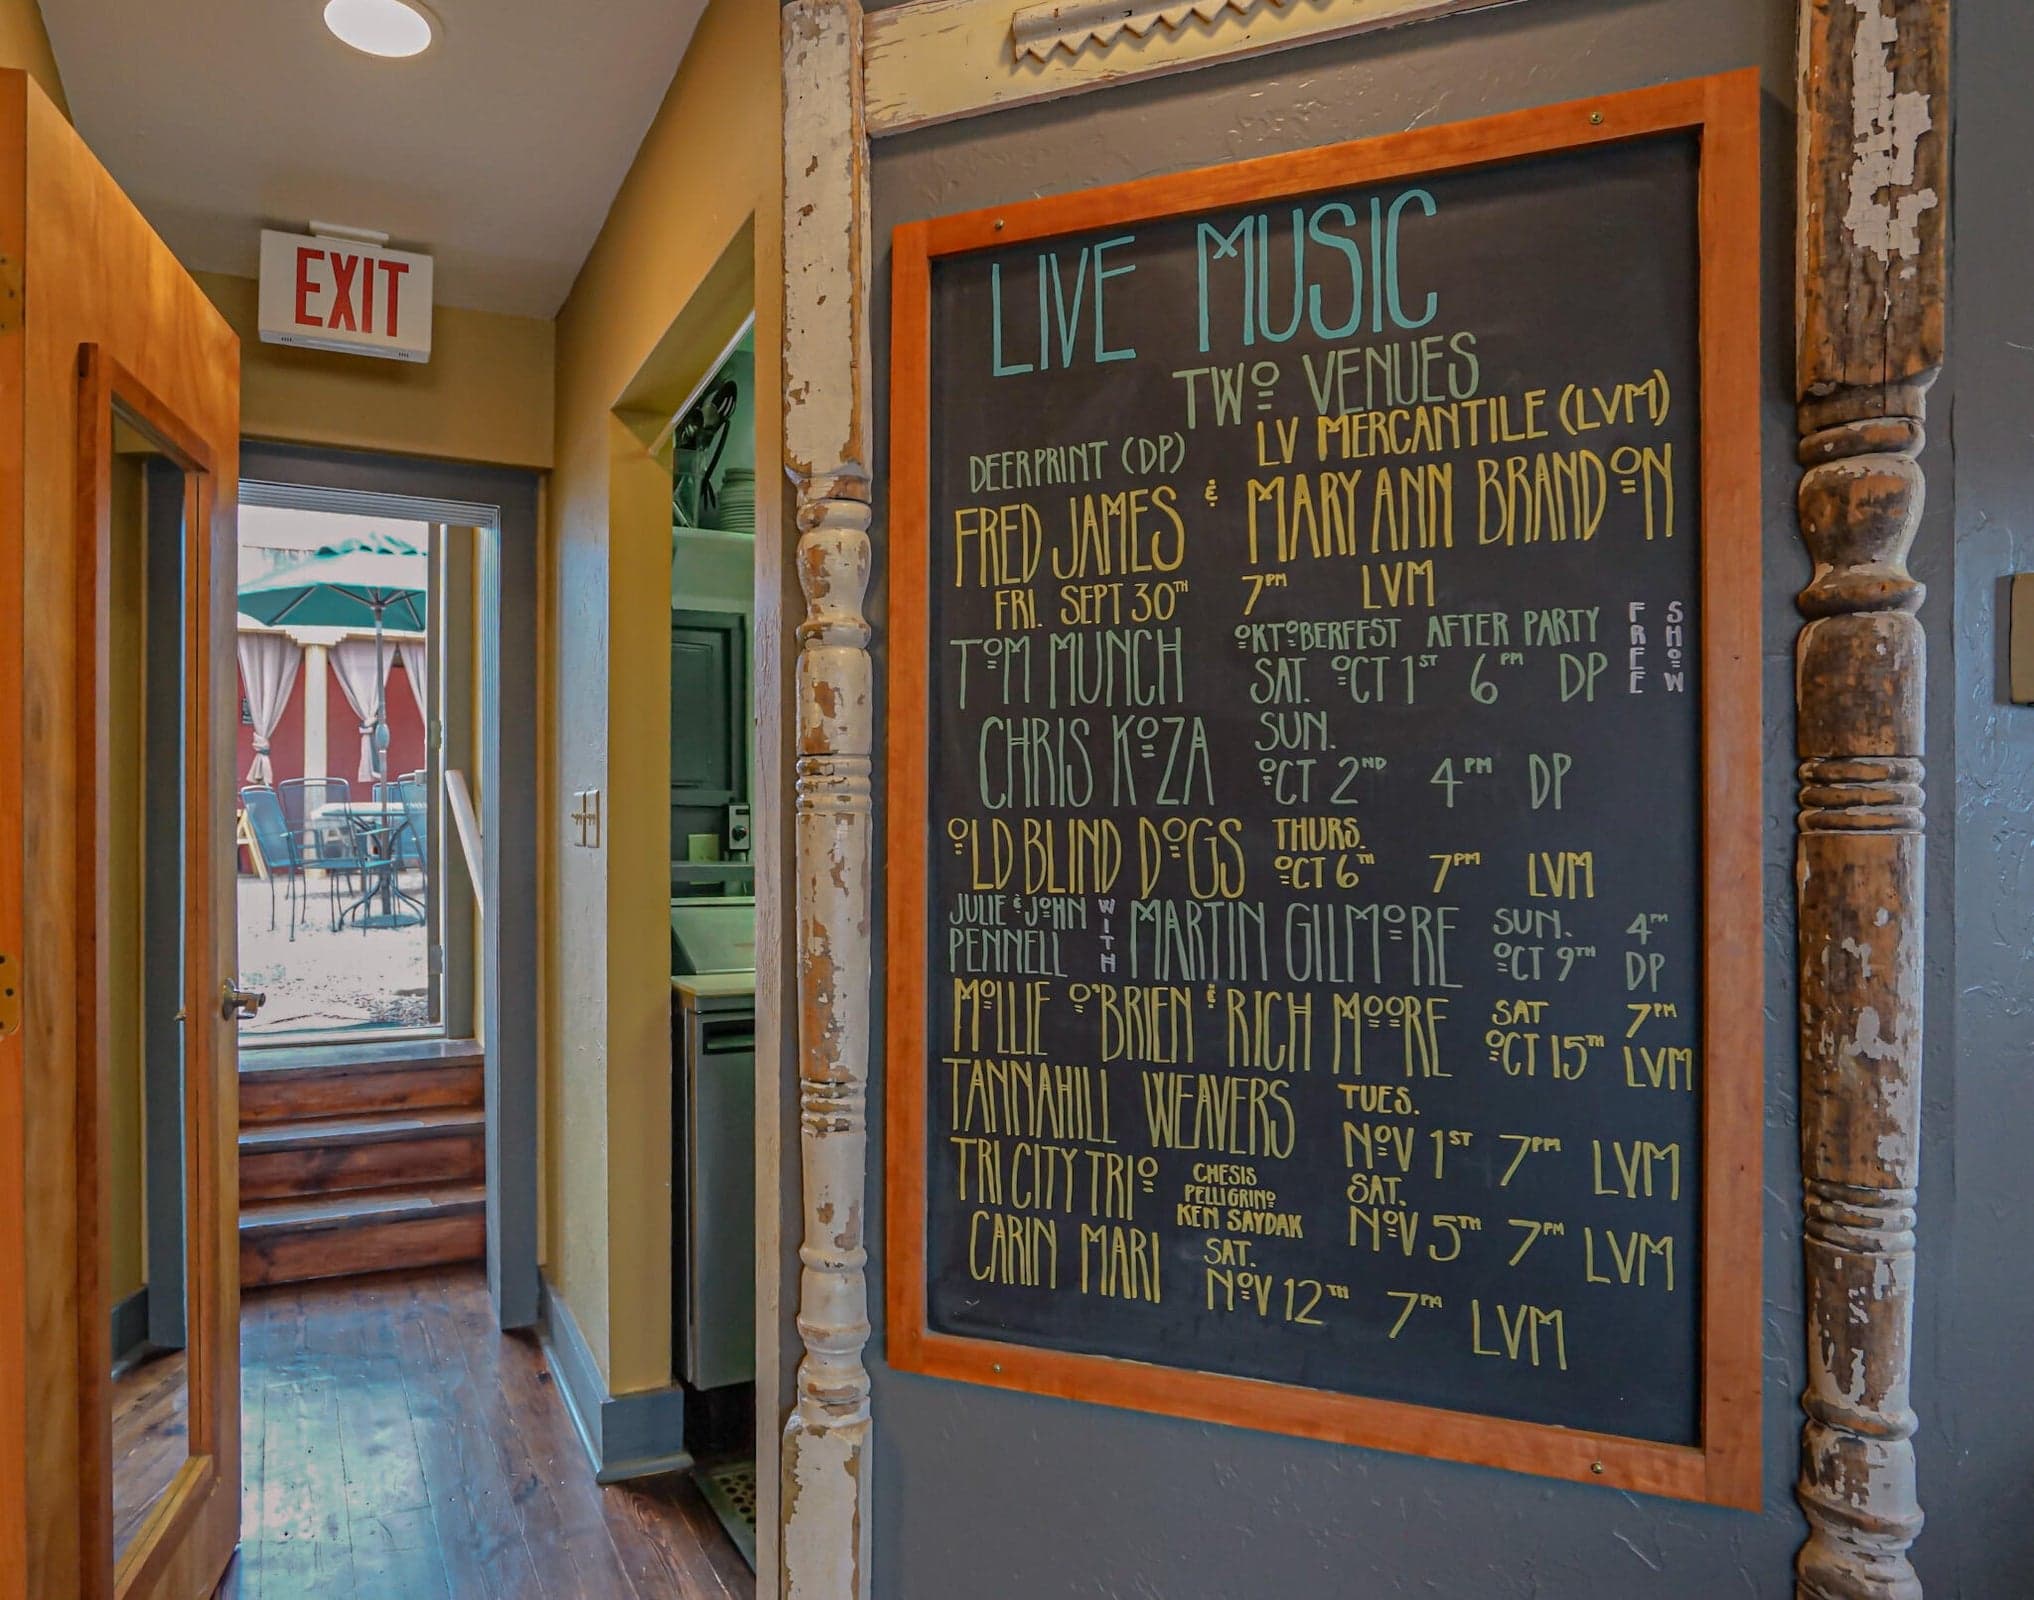 EXIT
LIVE MUSIC
TWO VENUES
DEERPRINT (DP) LV MERCANTILE (LVM)
FRED JAMES & MARY ANN BRANDON
FRI. SEPT 30TH 7PM LVM
TOM MUNCH OKTOBERFEST AFTER PARTY
SAT. OCT 1ST 6PM DP
FREE SHOW
CHRIS KOZA SUN.
OCT 2ND 4PM DP
OLD BLIND DOGS THURS.
OCT 6TH 7PM LVM
JULIE & JOHN PENNELL WITH MARTIN GILMORE SUN. 4PM
OCT 9TH DP
MOLLIE O'BRIEN & RICH MOORE SAT 7PM
OCT 15TH LVM
TANNAHILL WEAVERS TUES.
NOV 1ST 7PM LVM
TRI CITY TRIO CHESIS PELLIGRINO KEN SAYDAK SAT.
NOV 5TH 7PM LVM
CARIN MARI SAT.
NOV 12TH 7PM LVM